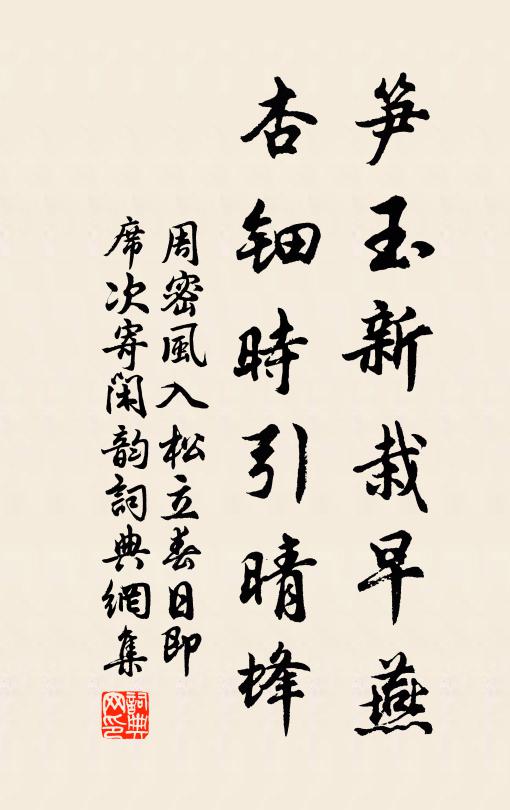 笋玉新栽早燕
杏鈿時引晴蜂
周密風入松立春日即
席次寄閑韵詞典網集
詞典网印